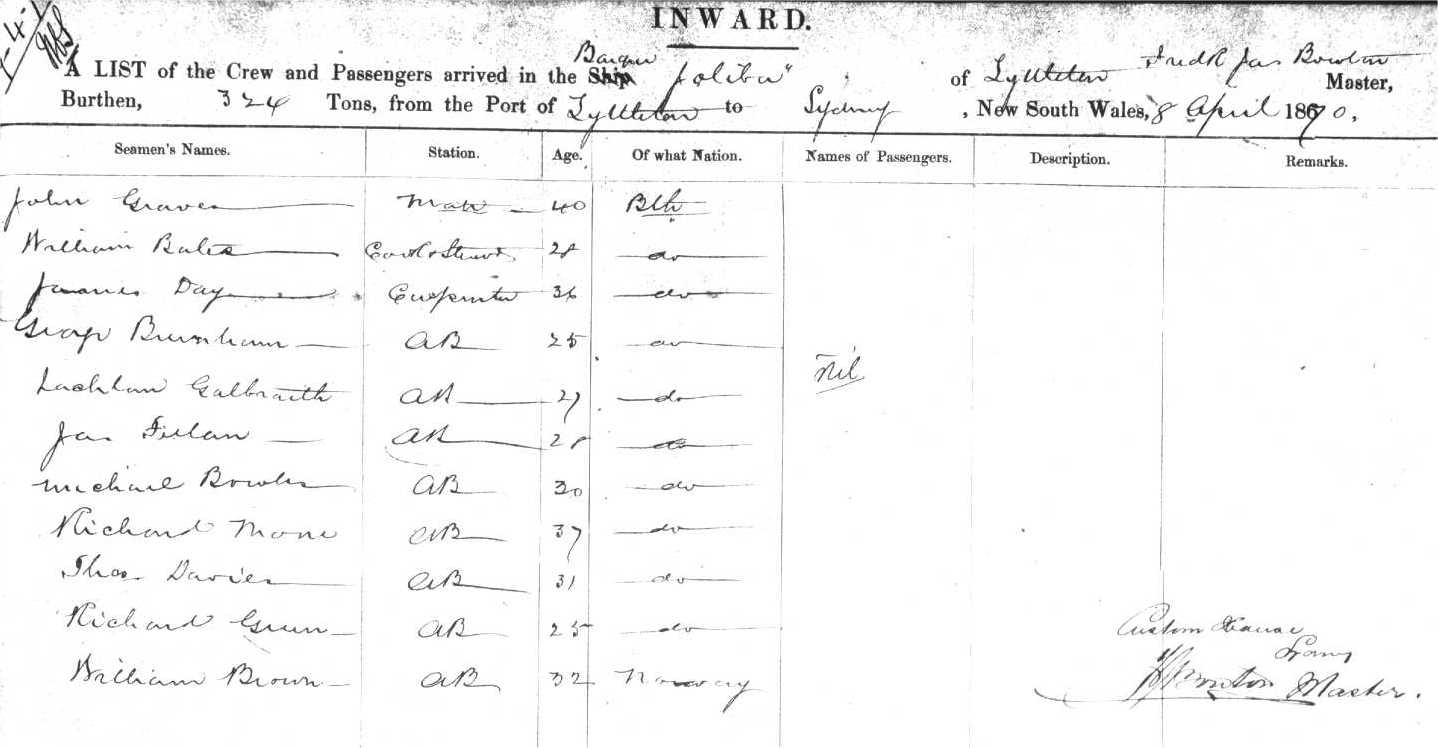 INWARD.
Barque
A LIST of the Crew and Passengers arrived in the Ship of Lyttleton Fredk Jas Master,
Burthen, 324 Tons, from the Port of Lyttleton to Sydney, New South Wales, 8 April 1870.
Seamen's Names. Station. Age. Of what Nation. Names of Passengers. Description. Remarks.
John Graves Mate 40 Bth
William Bates Cook & Steward 28 do
James Day Carpenter 36 do
George Burnham AB 25 do
Lachlan Galbraith AB 27 do
Nil
Jas AB 28 do
Michael Bowles AB 30 do
Richard Mone AB 37 do
Thos Davies AB 31 do
Richard Green AB 25 do
Custom House
William Brown AB 32 Norway
Master.